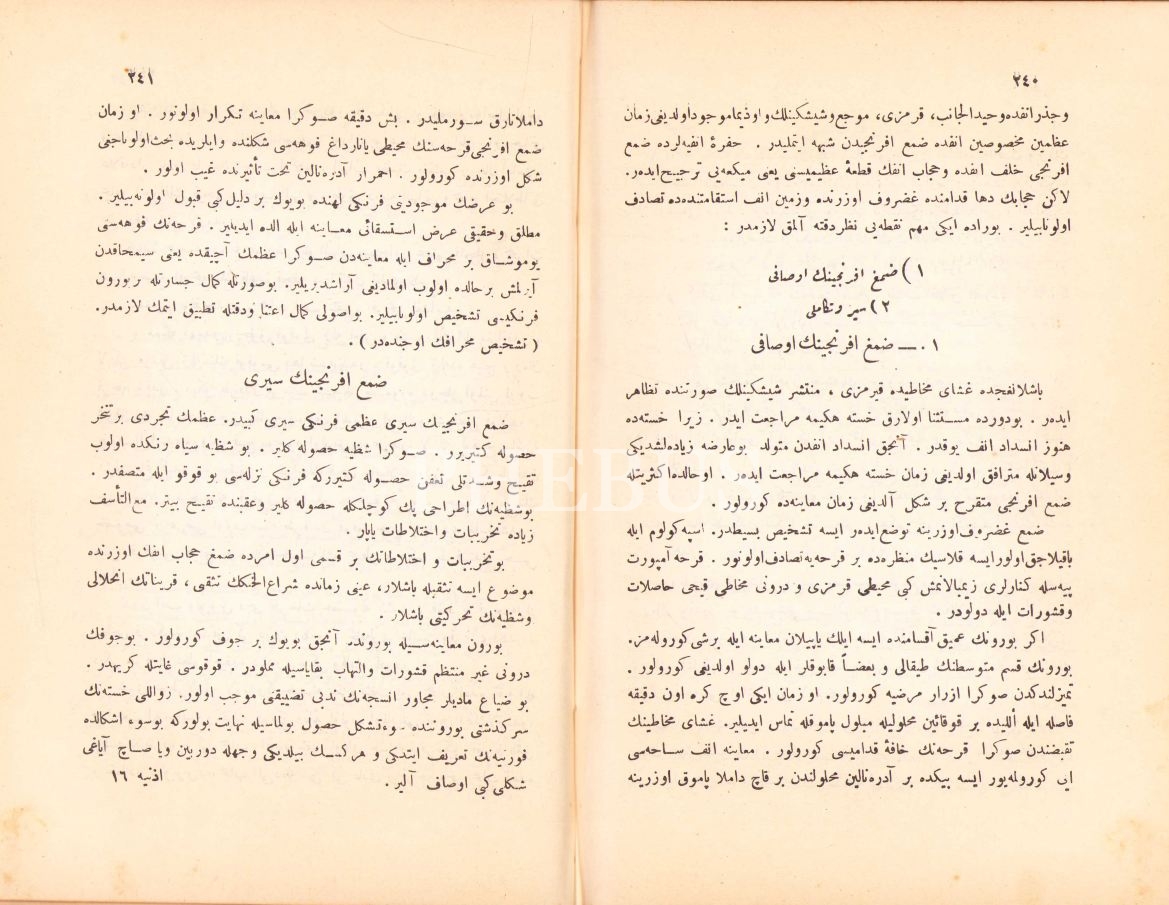 ٢٤٠
وجذر انفده وحيد الجانب، قرمزى، موجع وشيشكينلك واوذيما موجود اولديغى زمان
عظامين مخصوصين انفده ضمغ افرنجيدن شبهه ايتمليدر . حفرهٔ انفيه‌لرده ضمغ
افرنجى خلف انفده وحجاب انفك قطعهٔ عظيميسنى يعنى ميكعه‌يى ترجيح ايده‌ر.
لاكن حجابك دها قدامنده غضروف اوزرنده وزمين انف استقامتنده‌ده تصادف
اولونابيلير . بوراده ايكى مهم نقطه‌يى نظردقته آلمق لازمدر :
١ ) ضمغ افرنجينك ارصافى
٢ ) سير وتكاملى
١ . — ضمغ افرنجينك اوصافى
باشلانغجده غشاى مخاطيده قيرمزى ، منتشر شيشكينلك صورتنده تظاهر
ايده‌ر . بودورده مستثنا اولارق خسته هكيمه مراجعت ايدر . زيرا خسته‌ده
هنوز انسداد انف يوقدر . آنجق انسداد انفدن متولد بوعارضه زياده‌لشديكى
وسيلانله مترافق اولديغى زمان خسته هكيمه مراجعت ايده‌ر . او حالده اكثريتله
ضمغ افرنجى متقرح بر شكل آلديغى زمان معاينه‌ده كورولور .
ضمغ غضروف اوزرينه توضع ايده‌ر ايسه تشخيص بسيطدر. اسپه‌كولوم ايله
باقيلاجق اولور ايسه قلاسيك منظره‌ده بر قرحه‌يه تصادف اولونور . قرحه آمپورت
پيه‌سله كنارلرى زيمبالانمش كبى محيطى قرمزى و درونى مخاطى قيحى حاصلات
وقشورات ايله دولودر .
اكر بورونك عميق آقسامنده ايسه ايلك ياپيلان معاينه ايله برشى كوروله‌مز.
بورونك قسم متوسطنك طيقالى و بعضاً قابوقلر ايله دولو اولديغى كورولور .
تميزلندكدن صوكرا ازرار مرضيه كورولور. او زمان ايكى اوچ كره اون دقيقه
فاصله ايله أللیده بر قوقائين محلوليله مبلول پاموقله تماس ايديلير. غشاى مخاطينك
تقبضندن صوكرا قرحه‌نك حافهٔ قداميسى كورولور . معاينه انف ساحه‌سى
ايى كورولمه‌يور ايسه بيكده بر آدره‌نالين محلولندن بر قاچ داملا پاموق اوزرينه
٣٤١
داملاتارق سورمليدر . بش دقيقه صوكرا معاينه تكرار اولونور . او زمان
ضمع افرنجى قرحه‌سنك محيطى يانارداغ فوهه‌سى شكلنده وايلريده بحث اولوناجغى
شكل اوزرنده كورولور . احمرار آدره‌نالين تحت تأثيرنده غيب اولور .
بو عرضك موجوديتى فرنكى لهنده بويوك بر دليل كبى قبول اولونه‌بيلير .
مطلق وحقيقى عرض استسقائى معاينه ايله الده ايديلير . قرحه‌نك فوهه‌سنى
يوموشاق بر محراف ايله معاينه‌دن صوكرا عظمك آچيقده يعنى سيمحاقدن
آيرلمش برحالده اولوب اولماديغى آراشديريلير. بوصورتله كمال جسارتله بربورون
فرنكيسى تشخيص اولونابيلير. بواصولى كمال اعتنا ودقتله تطبيق ايتمك لازمدر.
( تشخيص محرافك اوجنده‌در ) .
ضمع افرنجينك سيرى
ضمع افرنجينك سيرى عظمى فرنكى سيرى كبيدر. عظمك تجردى برتنخر
حصوله كتيريرر . صوكرا شظيه حصوله كلير . بو شظيه سياه رنكده اولوب
تقيح وشدتلى تعفن حصوله كتيررﻛه فرنكى نزله‌سى بو قوقو ايله متصفدر .
بوشظيه‌نك اطراحى پك كوچلكله حصوله كلير وعقبنده تقيح بيتر. مع‌التأسف
زياده تخريبات و اختلاطات ياپار .
بوتخريبات و اختلاطاتك بر قسمى اول امرده ضمغ حجاب انفك اوزرنده
موضوع ايسه تثقبله باشلار، عينى زمانده شراع الحنكك تثقبى ، قريناتك انحلالى
وشظيه‌نك تحركيتى باشلار .
بورون معاينه‌سيله بوروندﻩ آنجق بويوك بر جوف كورولور . بوجوفك
درونى غير منتظم قشورات والتهاب بقاياسيله مملودر . قوقوسى غايتله كريهدر .
بو ضياع ماديلر مجاور انسجه‌نك ندبى تضييقنى موجب اولور. زواللى خسته‌نك
سر كذشتى بوروننده سوءتشكل حصول بولماسيله نهايت بولوركه بوسوء اشكالده
فورنيه‌نك تعريف ايتدكى و هركسك بيلديكى وجهله دوربين ويا صاچ آياغى
شكلى كبى اوصاف آلير .
اذنيه ١٦